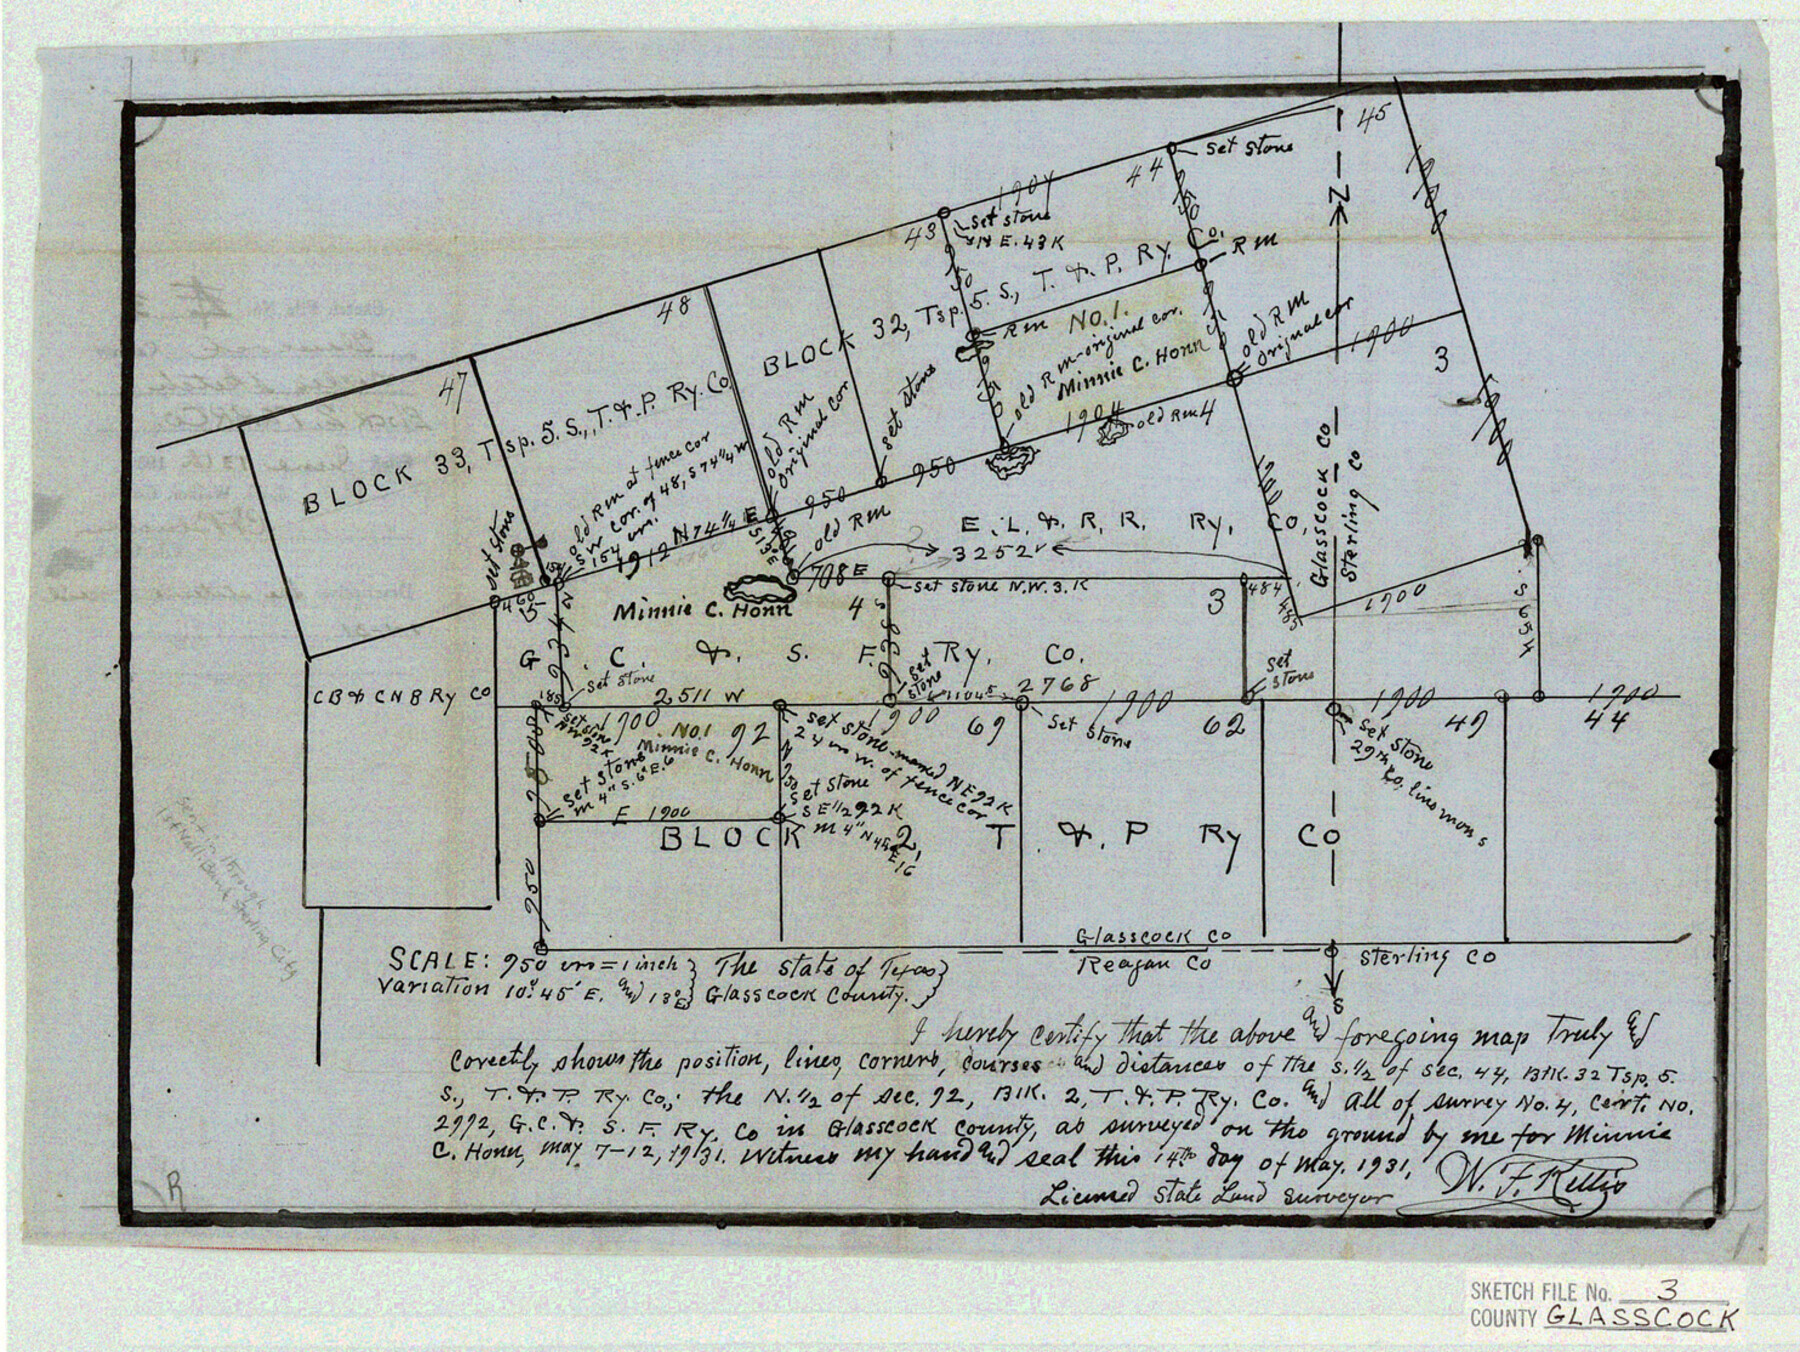 45
44
set stone
1900
1904
43
set stone
N
Rm
48
BLOCK 32, Tsp. 5. S., T. & P. Ry. Co.
950
950
Rm No. 1.
old Rm original cor.
Minnie C. Honn
old Rm
original cor
1900
3
47
BLOCK 33, Tsp. 5. S., T. & P. Ry. Co.
set stone
old Rm
original cor
1904
old Rm 4
old Rm at fence cor
S W cor. of 48, S 74¼ W
154 vrs.
1912 N 74¼ E
950
950
old Rm
E. L. & R. R. Ry. Co.
3252
Glasscock Co
Sterling Co
1900
1900
set stone
460
5
708 E
set stone N.W. 3. K
Minnie C. Honn
4
3
484
1900
S 654
G. C. & S. F. Ry. Co.
CB & CNB Ry Co
185
set stone
2511 W
set stone
1104.5
2768
set stone
1900
1900
1900
1900
1900
No. 1
92
Minnie C. Honn
69
62
49
44
set stone
NW 92 K
set stone marked NE 92 K
24 vrs w. of fence cor
set stone
set stone
29th Co. line mon s
set stone
m 4" S. 6 E. 6
N 950
set stone
S E ½ 92 K
E 1900
BLOCK 2, T. & P Ry CO
950
Glasscock Co
Reagan Co
Sterling Co
S
SCALE: 950 vrs = 1 inch } The state of Texas }
Variation 10° 45' E. and 13° E } Glasscock County. }
I hereby certify that the above and foregoing map Truly and
Corectily shows the position, lines, corners, courses and distances of the S.½ of sec. 44, Blk. 32 Tsp. 5.
S., T. & P. Ry. Co.; the N. ½ of sec. 92, Blk. 2, T. & P. Ry. Co. and All of survey No. 4, Cert. No.
2992, G. C. & S. F. Ry. Co in Glasscock County, as surveyed on the ground by me for Minnie
C. Honn, May 7-12, 1931. Witness my hand and seal this 14th day of May, 1931,
W. F. Kellis
Licensed State Land Surveyor
R
SKETCH FILE No. 3
COUNTY GLASSCOCK